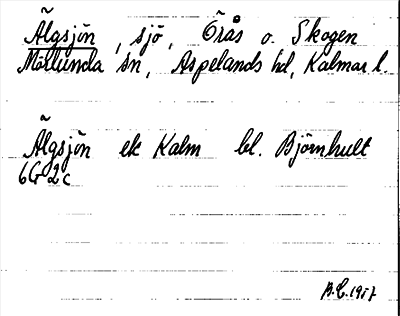 Älgsjön, sjö, Örås o. Skogen
Mörlunda sn, Aspelands hd, Kalmar l.
Älgsjön ek Kalm bl. Björnhult
6G 2c
B.E. 1957